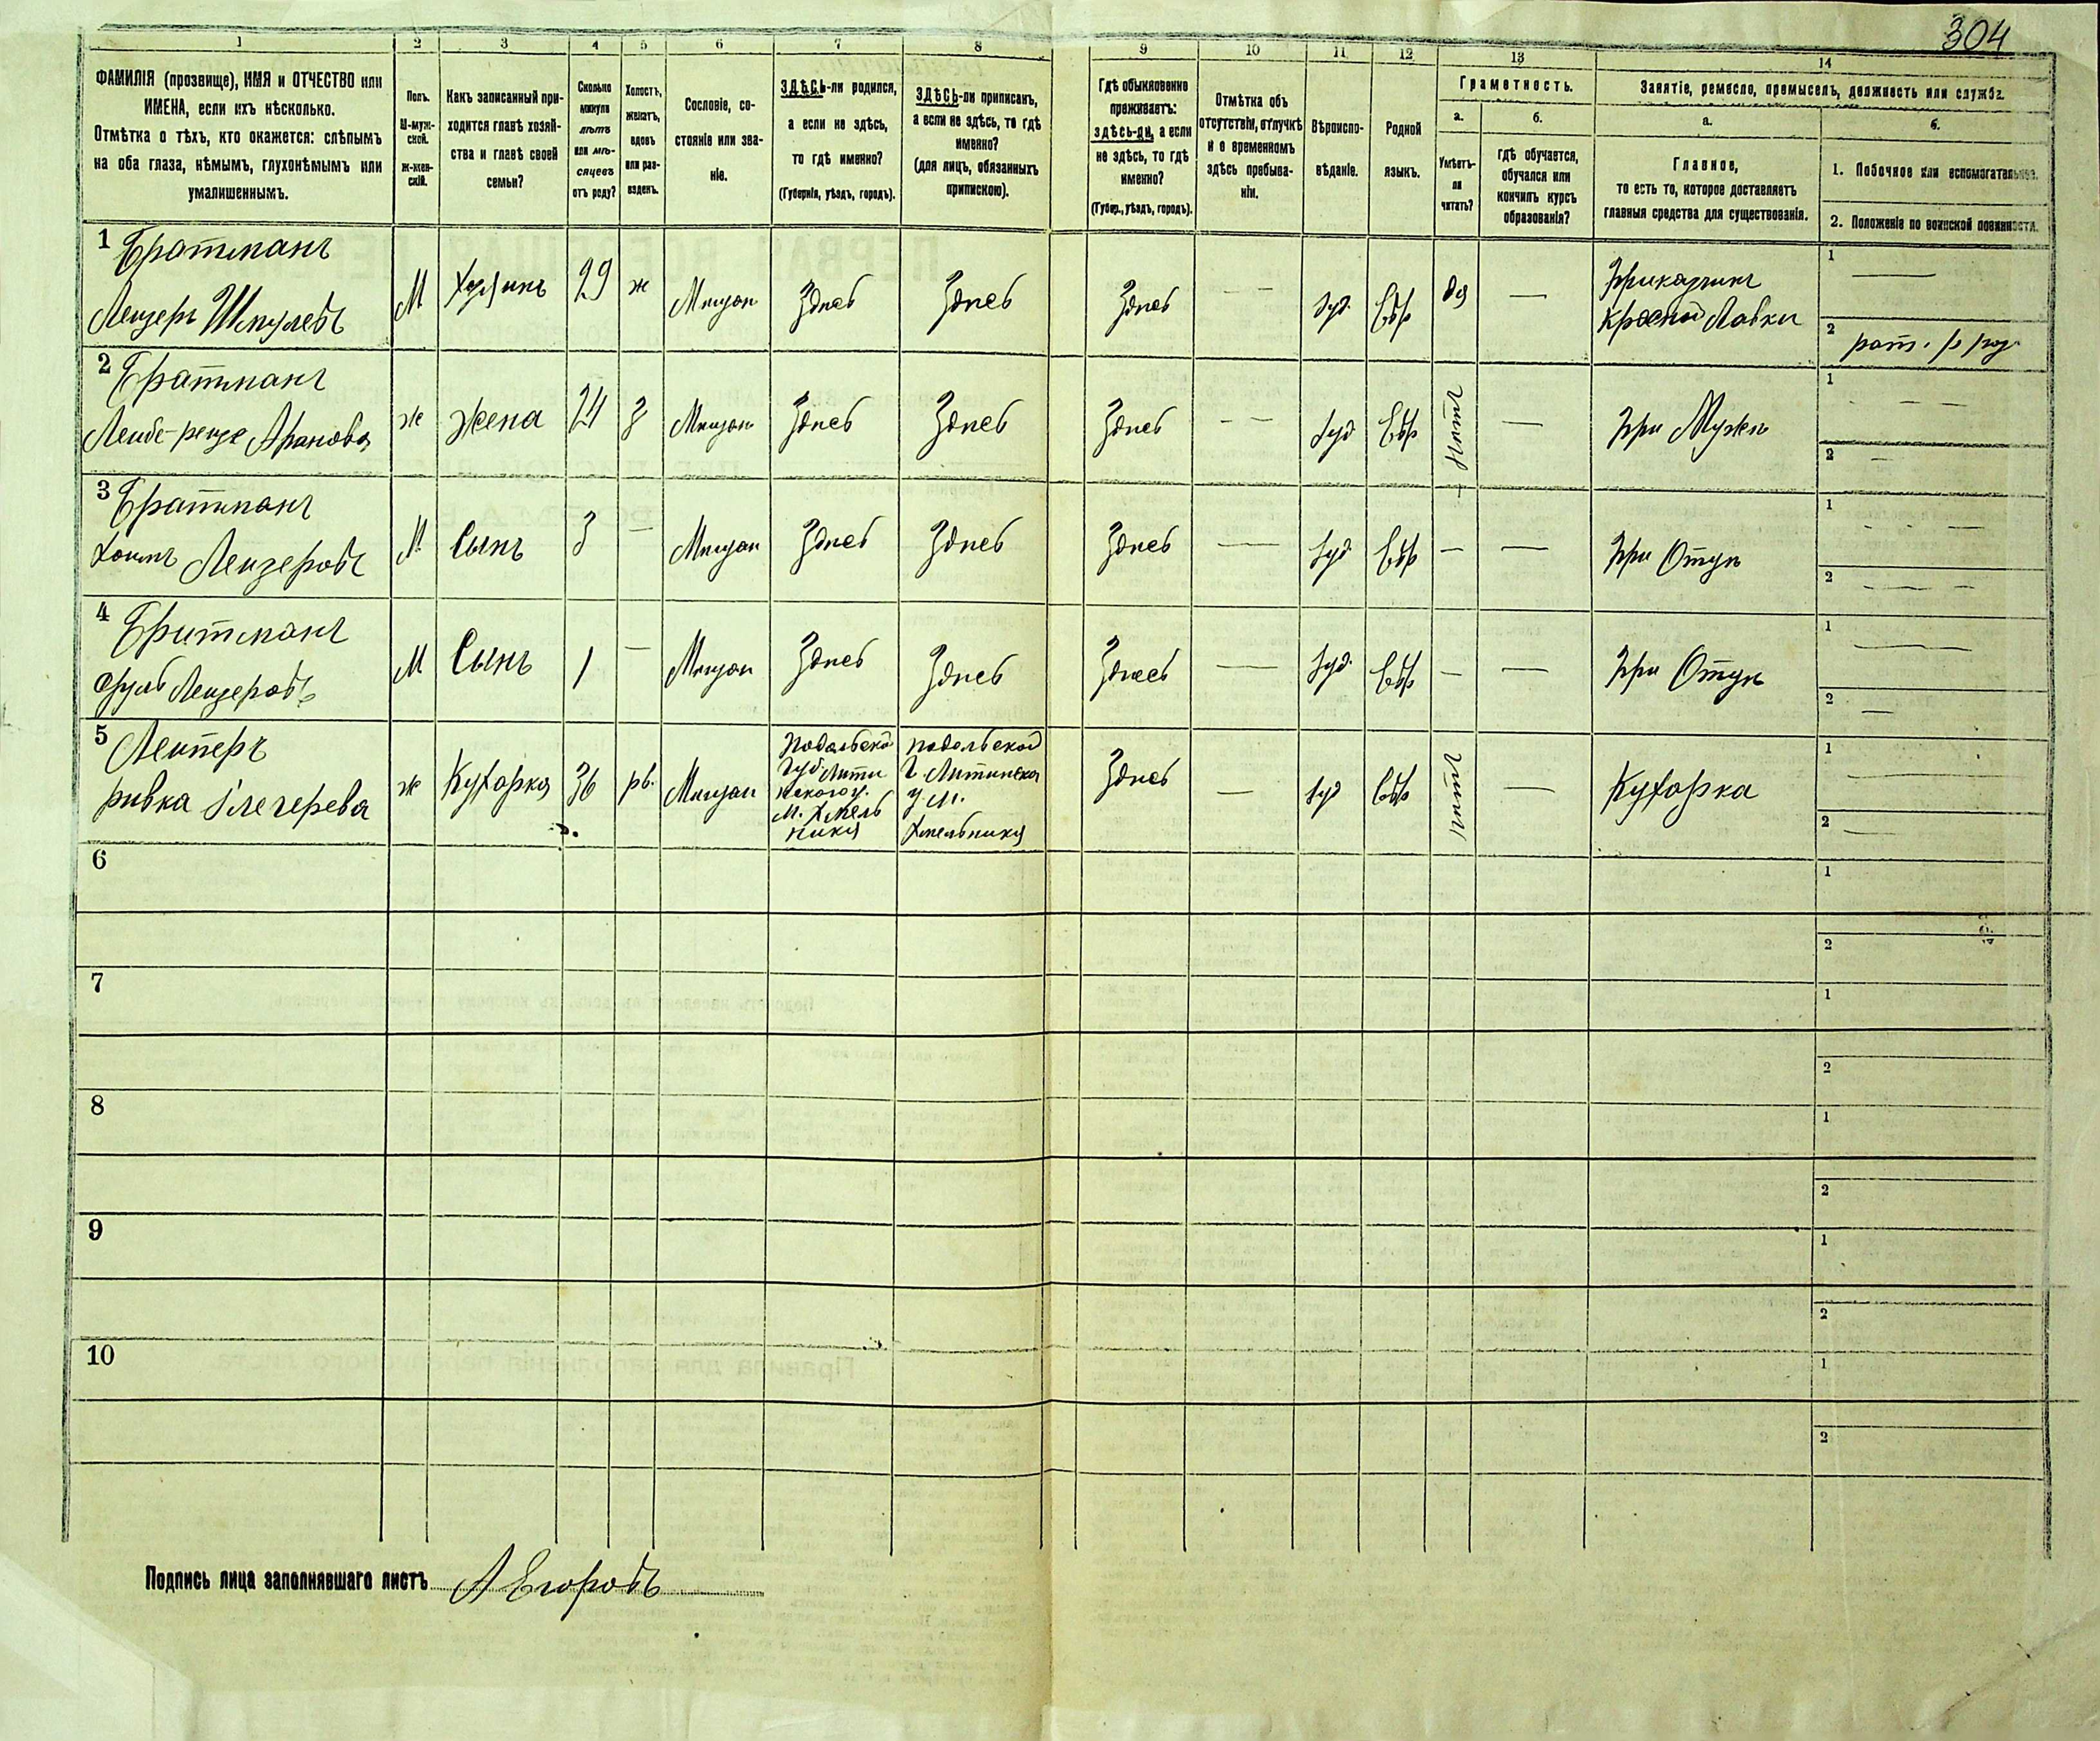 304
1 2 3 4 5 6 7 8 9 10 11 12 13 14
ФАМИЛІЯ (прозвище), ИМЯ и ОТЧЕСТВО или
ИМЕНА, если ихъ нѣсколько.
Отмѣтка о тѣхъ, кто окажется: слѣпымъ
на оба глаза, нѣмымъ, глухонѣмымъ или
умалишеннымъ.
Полъ.
М-муж-
ской.
ж-жен-
скій.
Какъ записанный при-
ходится главѣ хозяй-
ства и главѣ своей
семьи?
Сколько
минуло
лѣтъ
или мѣ-
сяцевъ
отъ роду?
Холостъ,
женатъ,
вдовъ
или раз-
веденъ.
Сословіе, со-
стояніе или зва-
ніе.
ЗДѢСЬ-ли родился,
а если не здѣсь,
то гдѣ именно?
(Губернія, уѣздъ, городъ).
ЗДѢСЬ-ли приписанъ,
а если не здѣсь, то гдѣ
именно?
(для лицъ, обязанныхъ
припискою).
Гдѣ обыкновенно
проживаетъ:
здѣсь-ли, а если
не здѣсь, то гдѣ
именно?
(Губер., уѣздъ, городъ).
Отмѣтка объ
отсутствіи, отлучкѣ
и о временномъ
здѣсь пребыва-
ніи.
Вѣроиспо-
вѣданіе.
Родной
языкъ.
Грамотность.
а.
Умѣетъ-
ли
читать?
б.
гдѣ обучается,
обучался или
кончилъ курсъ
образованія?
Занятіе, ремесло, промыселъ, должность или служба.
а.
Главное,
то есть то, которое доставляетъ
главныя средства для существованія.
б.
1. Побочное или вспомогательное.
2. Положеніе по воинской повинности.
1 Братманъ
Лейзеръ Шмулевъ
М
Хозяинъ
29
ж
Мѣщан
Здѣсь
Здѣсь
Здѣсь
— —
Іуд.
Евр
да
—
Прикащикъ
Красной Лавки
1 —
2
2 Братманъ
Арановa
ж
Жена
24
З
Мѣщан
Здѣсь
Здѣсь
Здѣсь
— —
Іуд
Евр
Нѣтъ
—
При Мужѣ
1 - — —
2 —
3 Братманъ
Хаимъ Лейзеровъ
М
Сынъ
3
—
Мѣщан
Здѣсь
Здѣсь
Здѣсь
—
Іуд
Евр
—
—
При Отцѣ
1 - - —
2 — — —
4 Братманъ
Сруль Лейзеровъ
М
Сынъ
1
—
Мѣщан
Здѣсь
Здѣсь
Здѣсь
—
Іуд.
Евр
—
—
При Отцѣ
1 —
2 —
5
ривка
ж
Кухарка
36
Мѣщан
Подольской
Губ. Лити
нскаго у.
М. Хмель
ника
подольской
Г. Литинска
у м.
Хмельника
Здѣсь
—
Іуд
Евр
нѣтъ
—
Кухарка
1 —
2 —
6
1
2
7
1
2
8
1
2
9
1
2
10
1
2
Подпись лица заполнявшаго листъ А Егоровъ